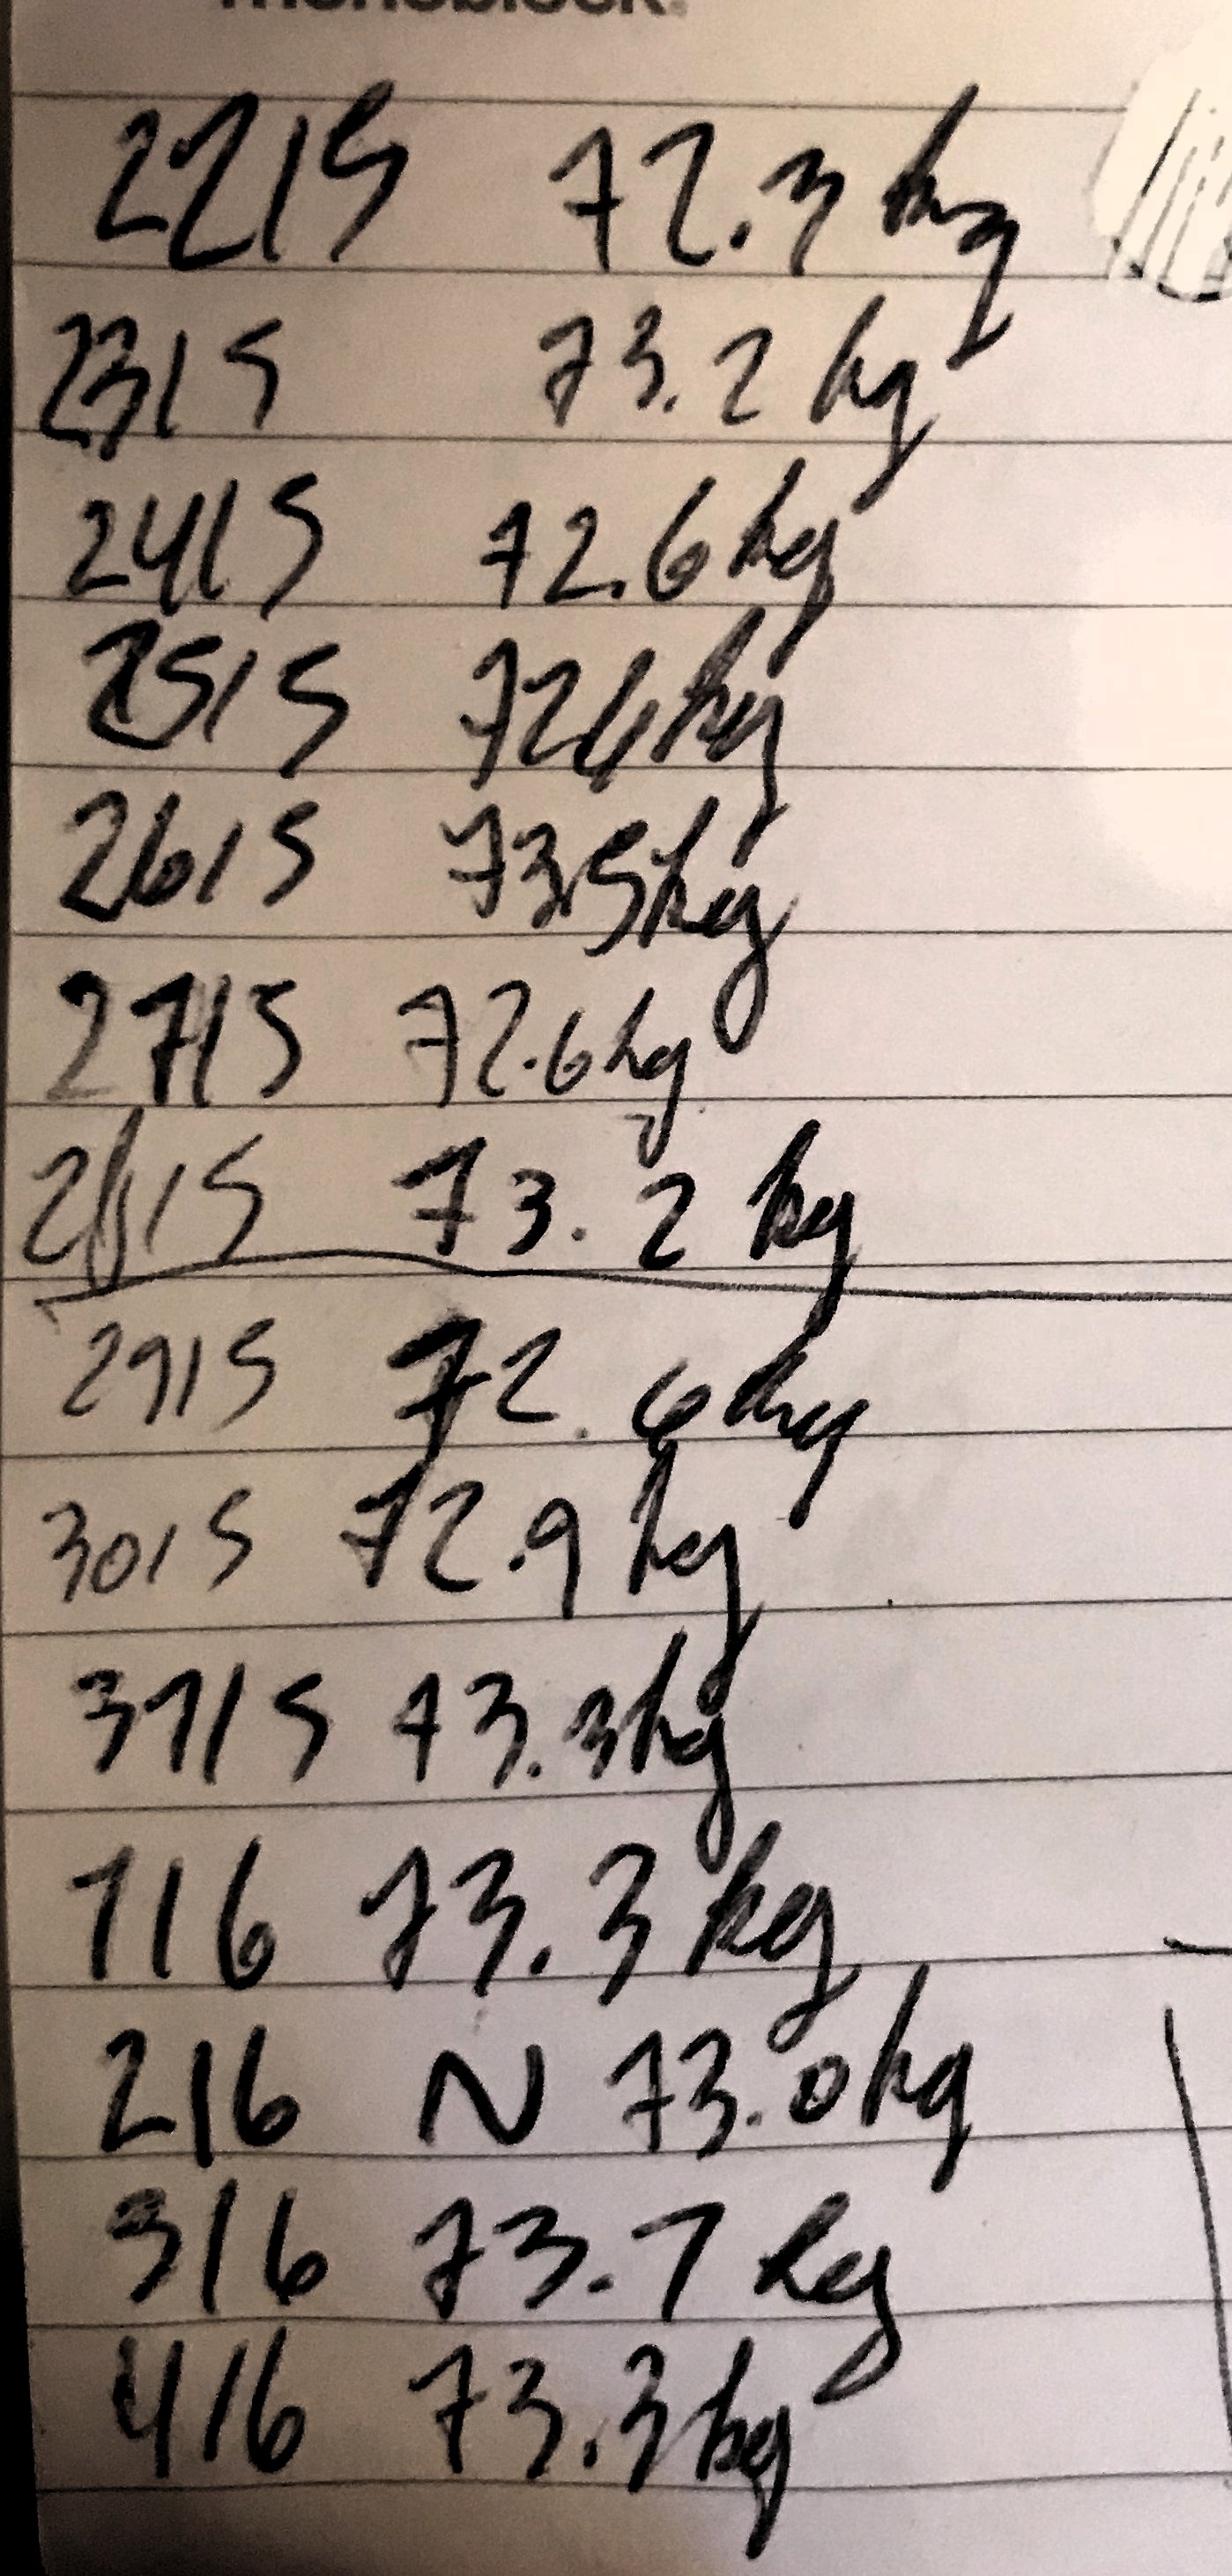 monoblock.
22/5 72.3 kg
23/5 73.2 kg
24/5 72.6 kg
25/5 72.6 kg
26/5 73.5 kg
27/5 72.6 kg
28/5 73.2 kg
29/5 72.6 kg
30/5 72.9 kg
31/5 73.3 kg
1/6 73.3 kg
2/6 N 73.0 kg
3/6 73.7 kg
4/6 73.3 kg